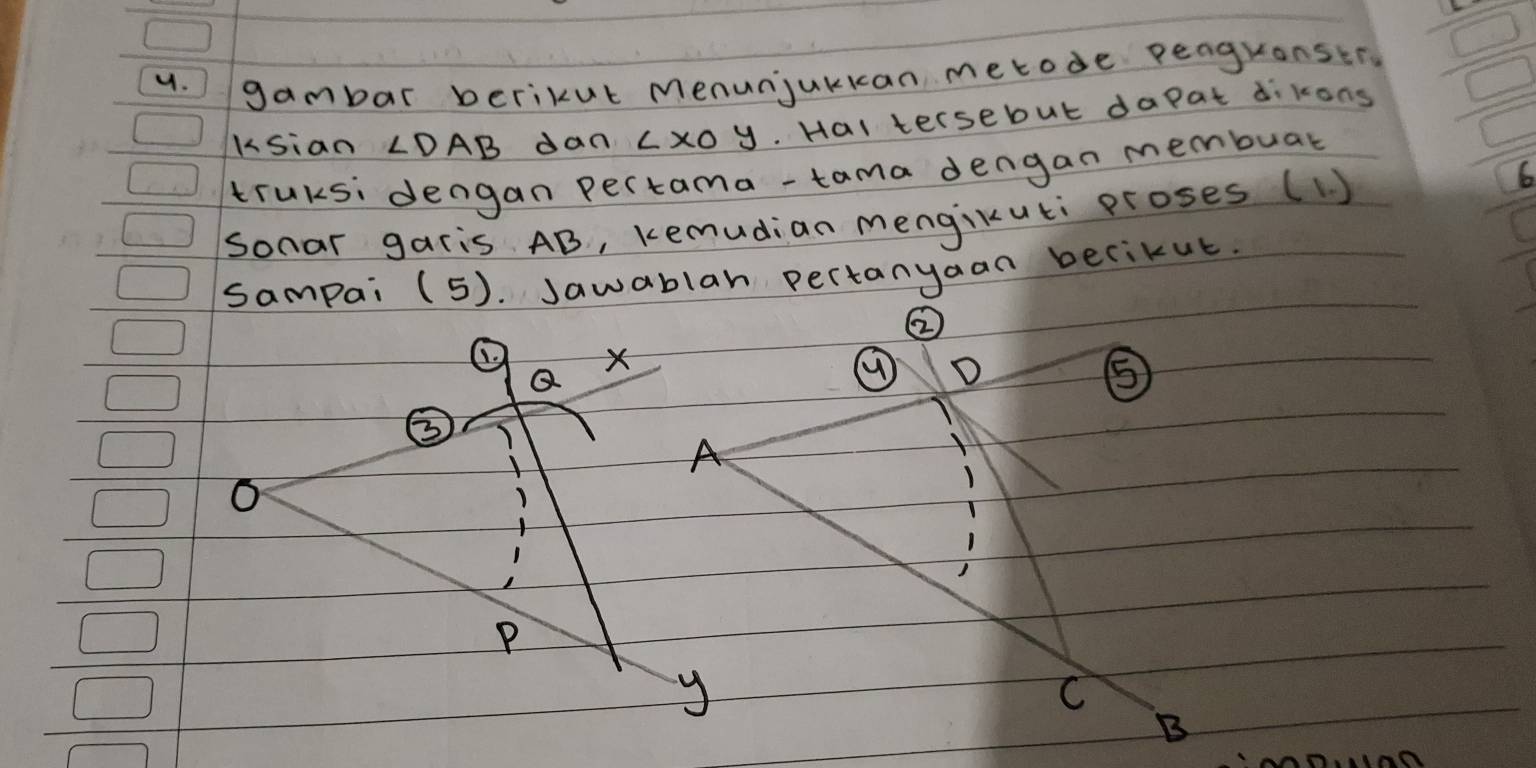 4. gambar berikut menunjukkan metode pengkonstru
ksian ∠DAB dan ∠XOY. Hal tersebut dapat dikons
truksi dengan pertama-tama dengan membuat
sonar garis AB, kemudian mengikuti proses (1.)
sampai (5). Jawablah pertanyaan berikut.
① Q X
③
O
P
y
②
④ D ⑤
A
C
B
6